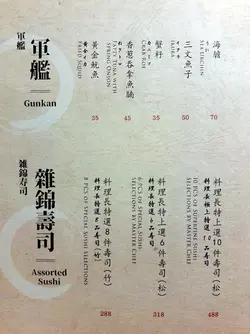 軍艦
軍艦
Gunkan
海膽
うに
70
三文魚子
イクラ
Ikura
50
蟹籽
Crab Roe
35
香葱吞拿魚腩
Fatty Tuna with Spring Onion
45
黃金魷魚
Fried Squid
35
雜錦壽司
雜錦寿司
Assorted Sushi
料理長極上選 10 件壽司 (松)
10 pcs of Supreme Sushi Selections by Master Chef
488
料理長特上選 6 件壽司 (松)
6 pcs of Special Sushi Selections by Master Chef
318
料理長特選 8 件壽司 (竹)
8 pcs of Special Sushi Selections
288